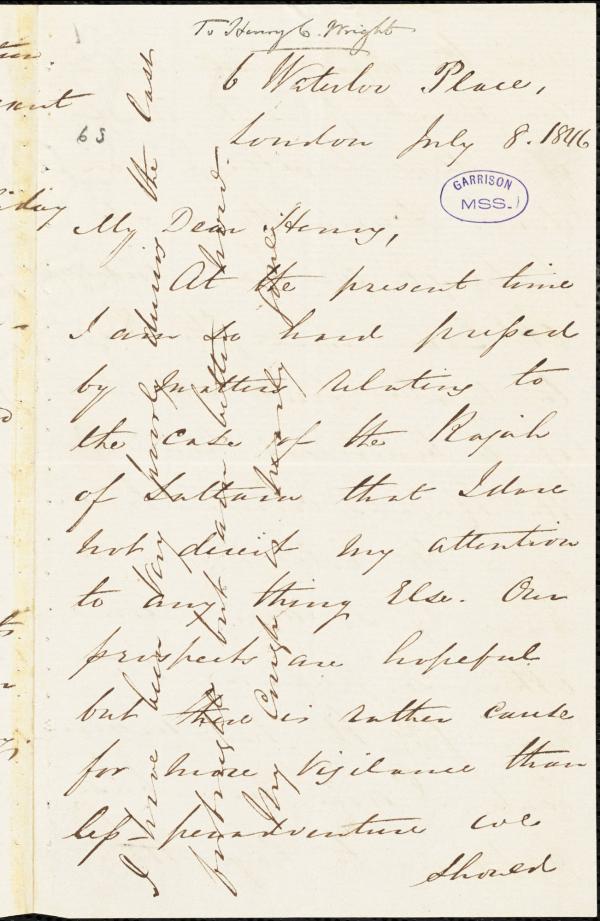 To Henry C. Wright
6 Waterloo Place,
London July 8. 1846
65
GARRISON
MSS.
My Dear Henry,
At the present time
I am so hard pressed
by matters relating to
the case of the Rajah
of Sattara that I dare
not direct my attention
to any thing Else. Our
prospects are hopeful
but there is rather cause
for more vigilance than
less peradventure we
should
I have been very poorly during the last
fortnight but am better now.
My cough is nearly gone